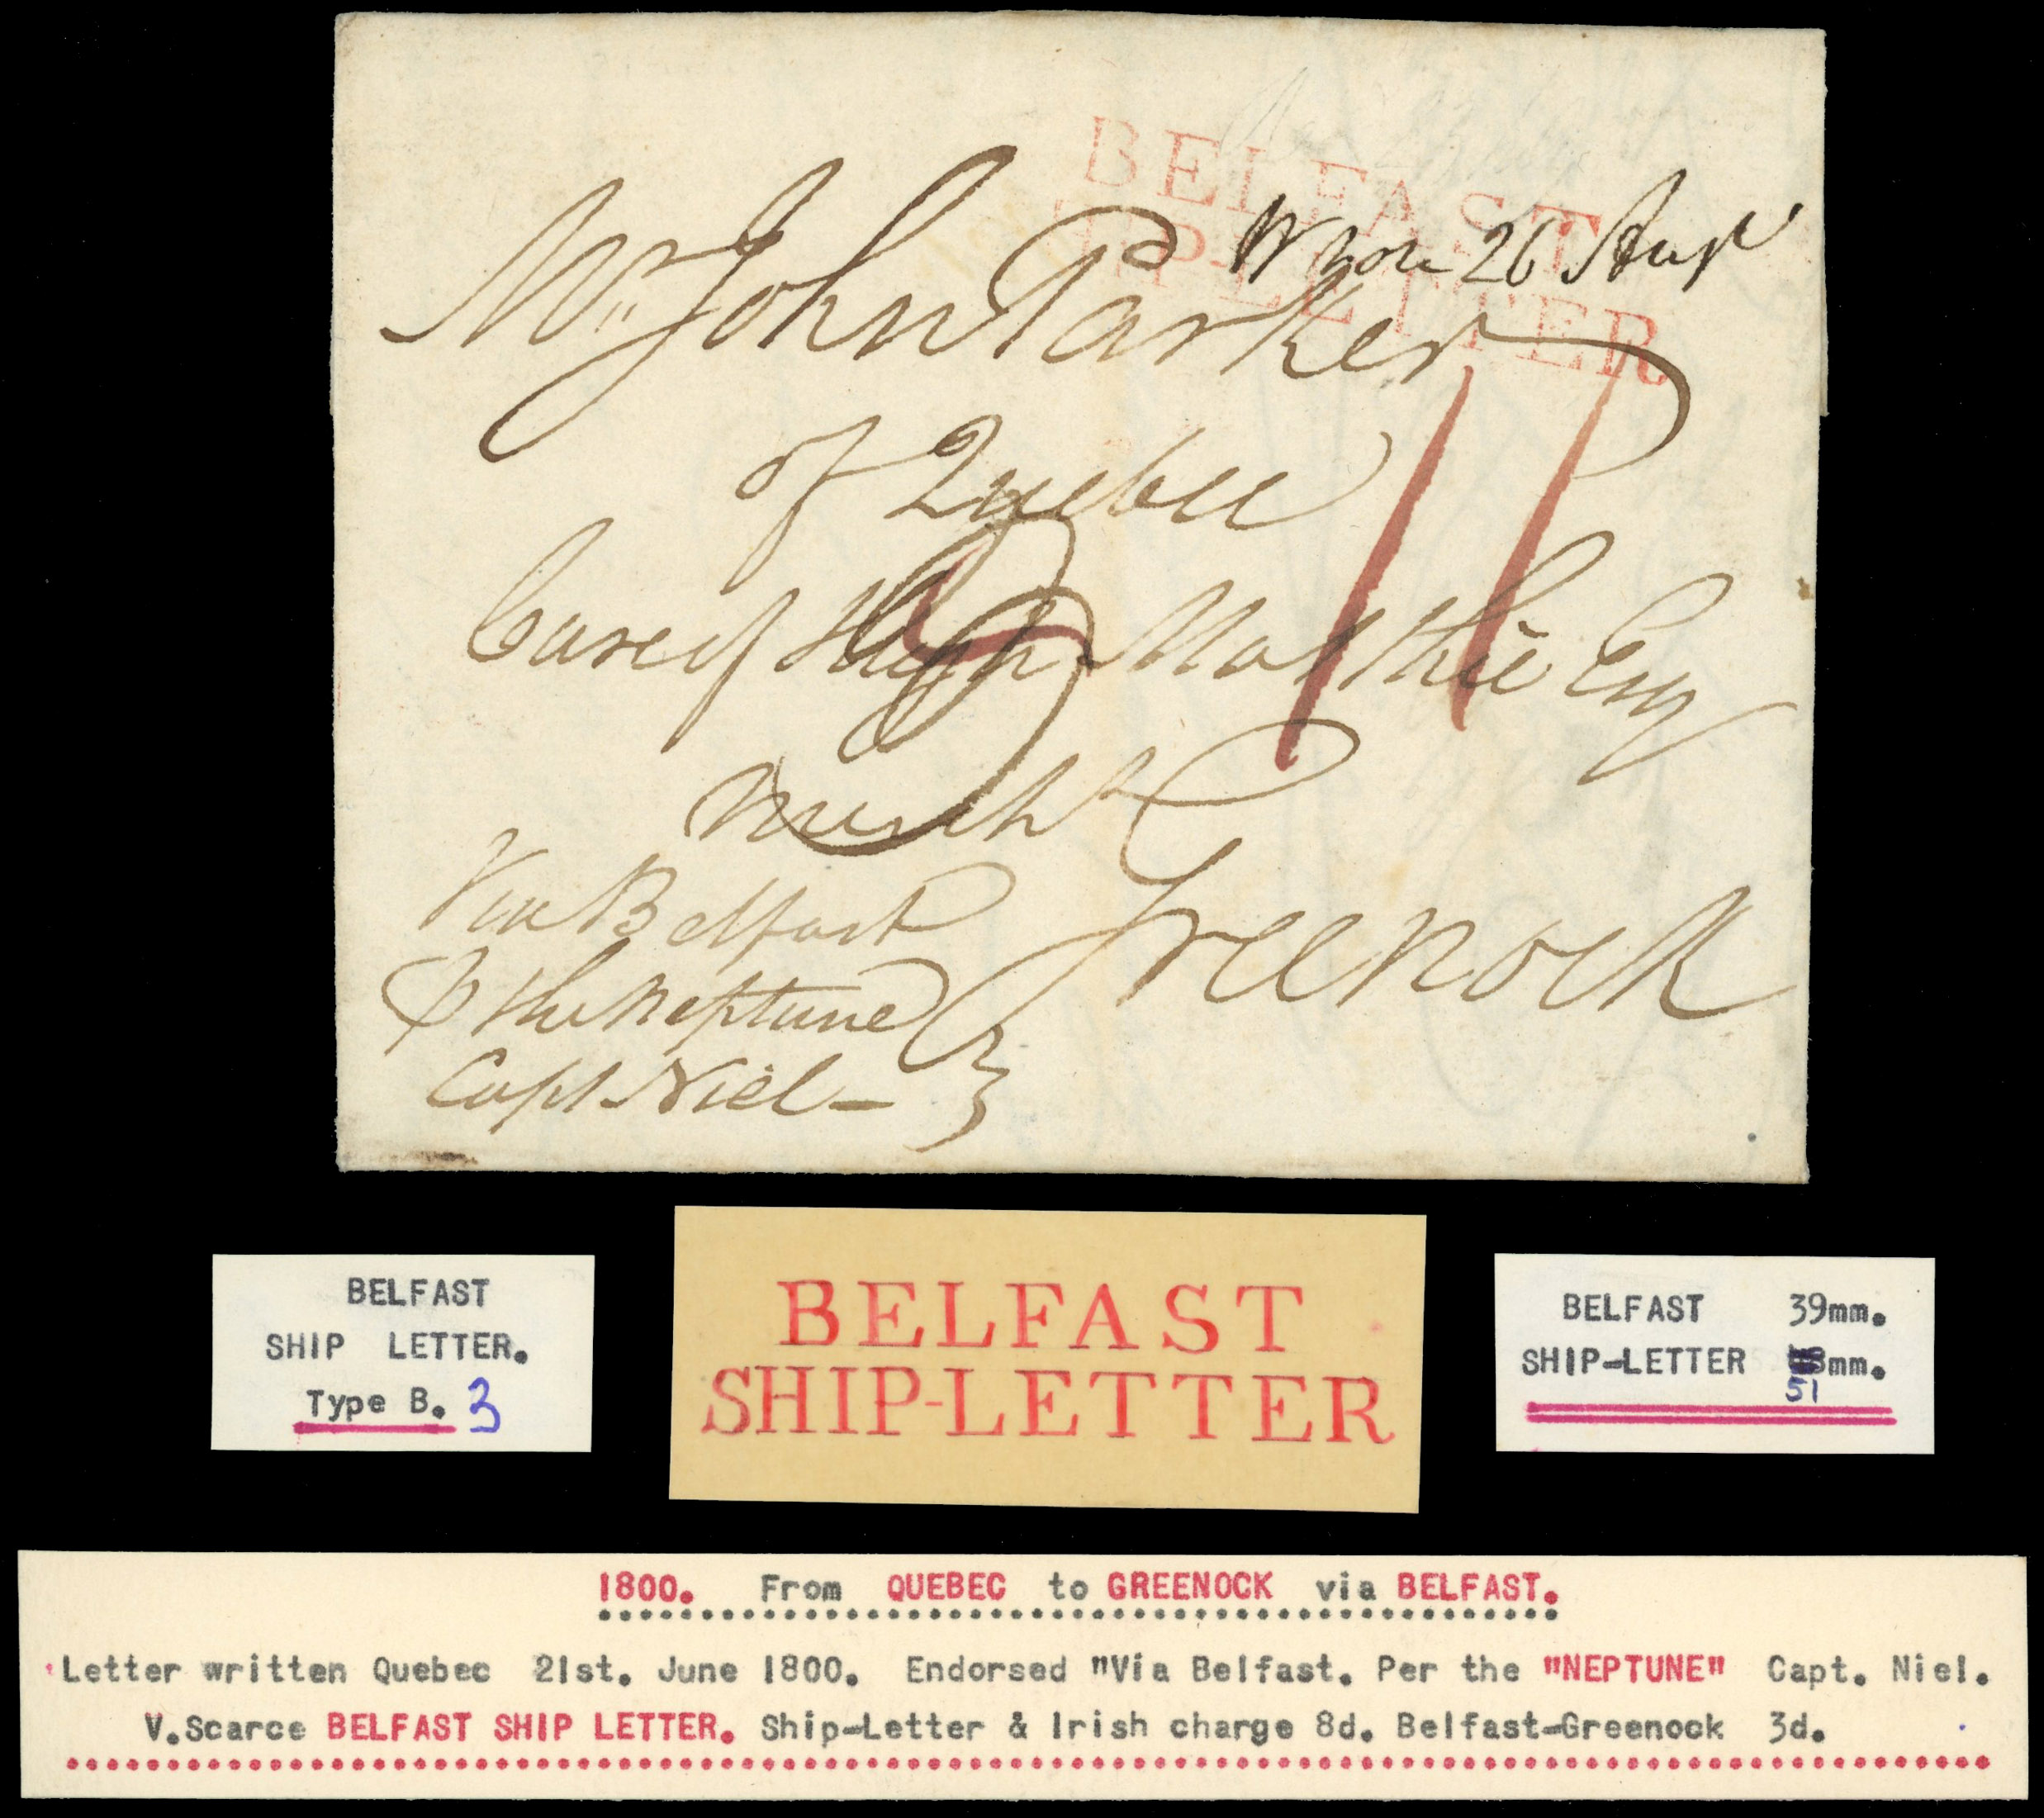 BELFAST
SHIP-LETTER
26
Mr. John Parker
of Quebec
Care of Hugh Matthie Esq
Mercht
Greenock
Via Belfast
the Neptune
Capt Niel -
11
BELFAST
SHIP LETTER.
Type B. 3
BELFAST
SHIP-LETTER
BELFAST 39mm.
SHIP-LETTER mm.
51
1800. From QUEBEC to GREENOCK via BELFAST.
Letter written Quebec 21st. June 1800. Endorsed "Via Belfast. Per the "NEPTUNE" Capt. Niel.
V.Scarce BELFAST SHIP LETTER. Ship-Letter & Irish charge 8d. Belfast-Greenock 3d.